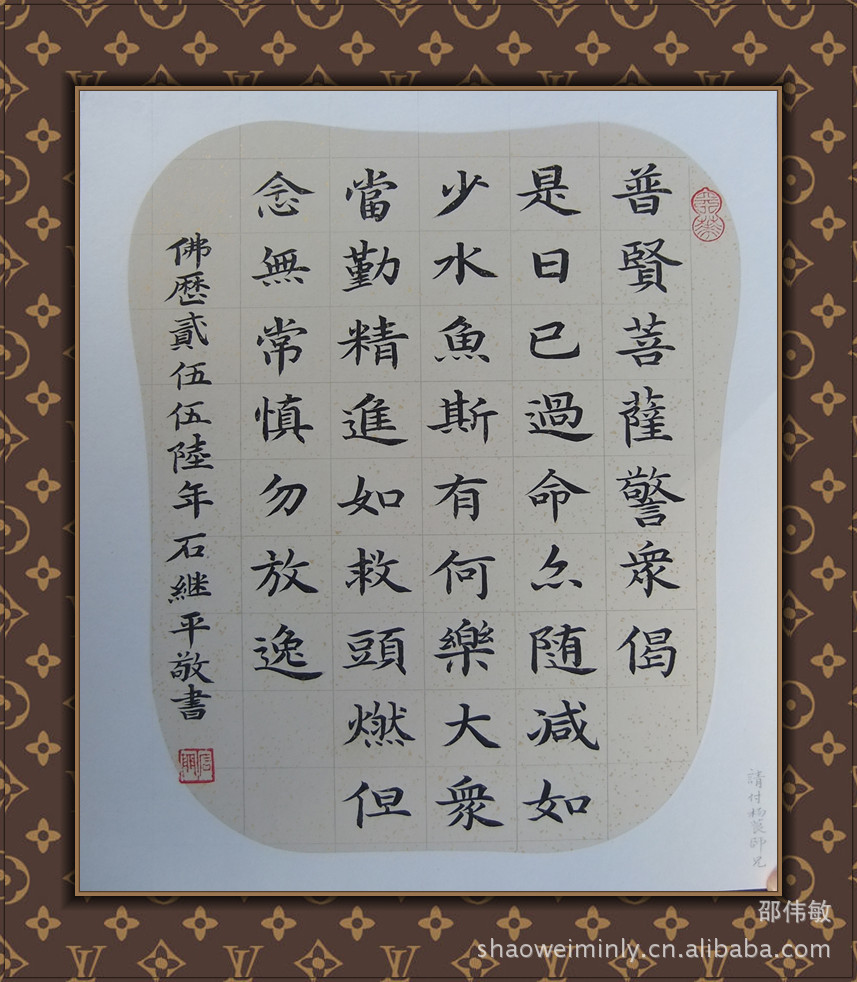 普賢菩薩警衆偈
是日已過命亦随减如
少水魚斯有何樂大衆
當勤精進如救頭燃但
念無常慎勿放逸
佛歷貳伍伍陸年石继平敬書
請付楊茛師兄
邵伟敏
shaoweiminly.cn.alibaba.com